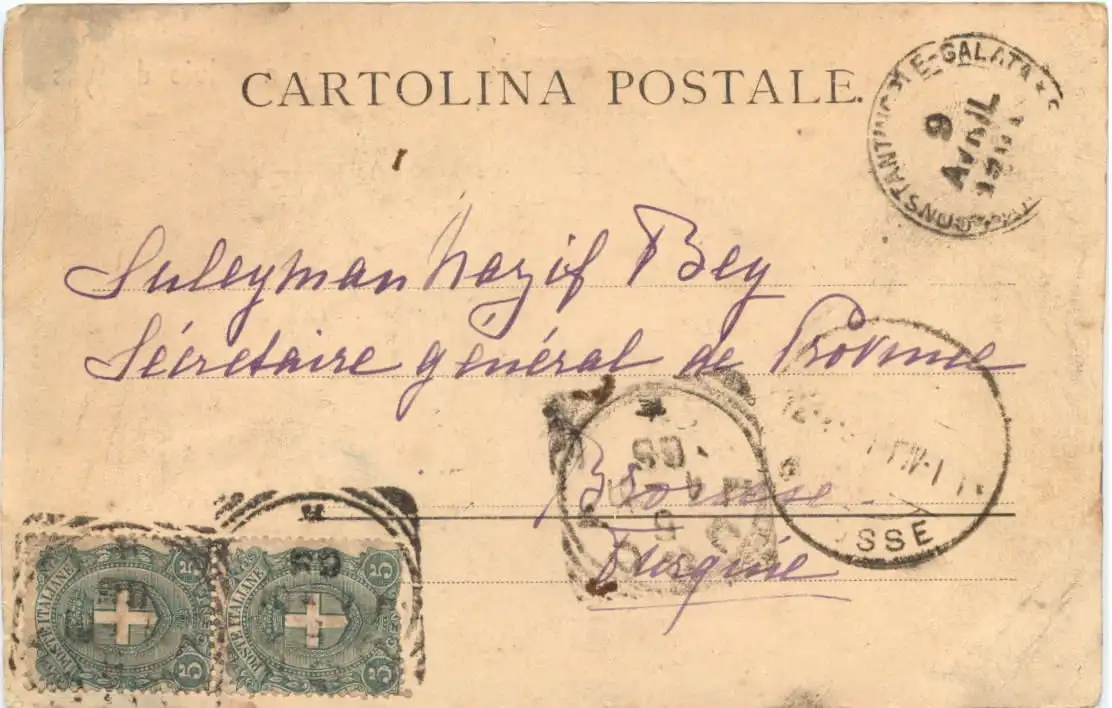 CARTOLINA POSTALE.
CONSTANTINOPLE-GALATA
9
AVRIL
Suleyman Nazif Bey
Sécretaire général de Province
Brousse
Turquie
POSTE ITALIANE
5
5
POSTE ITALIANE
5
5